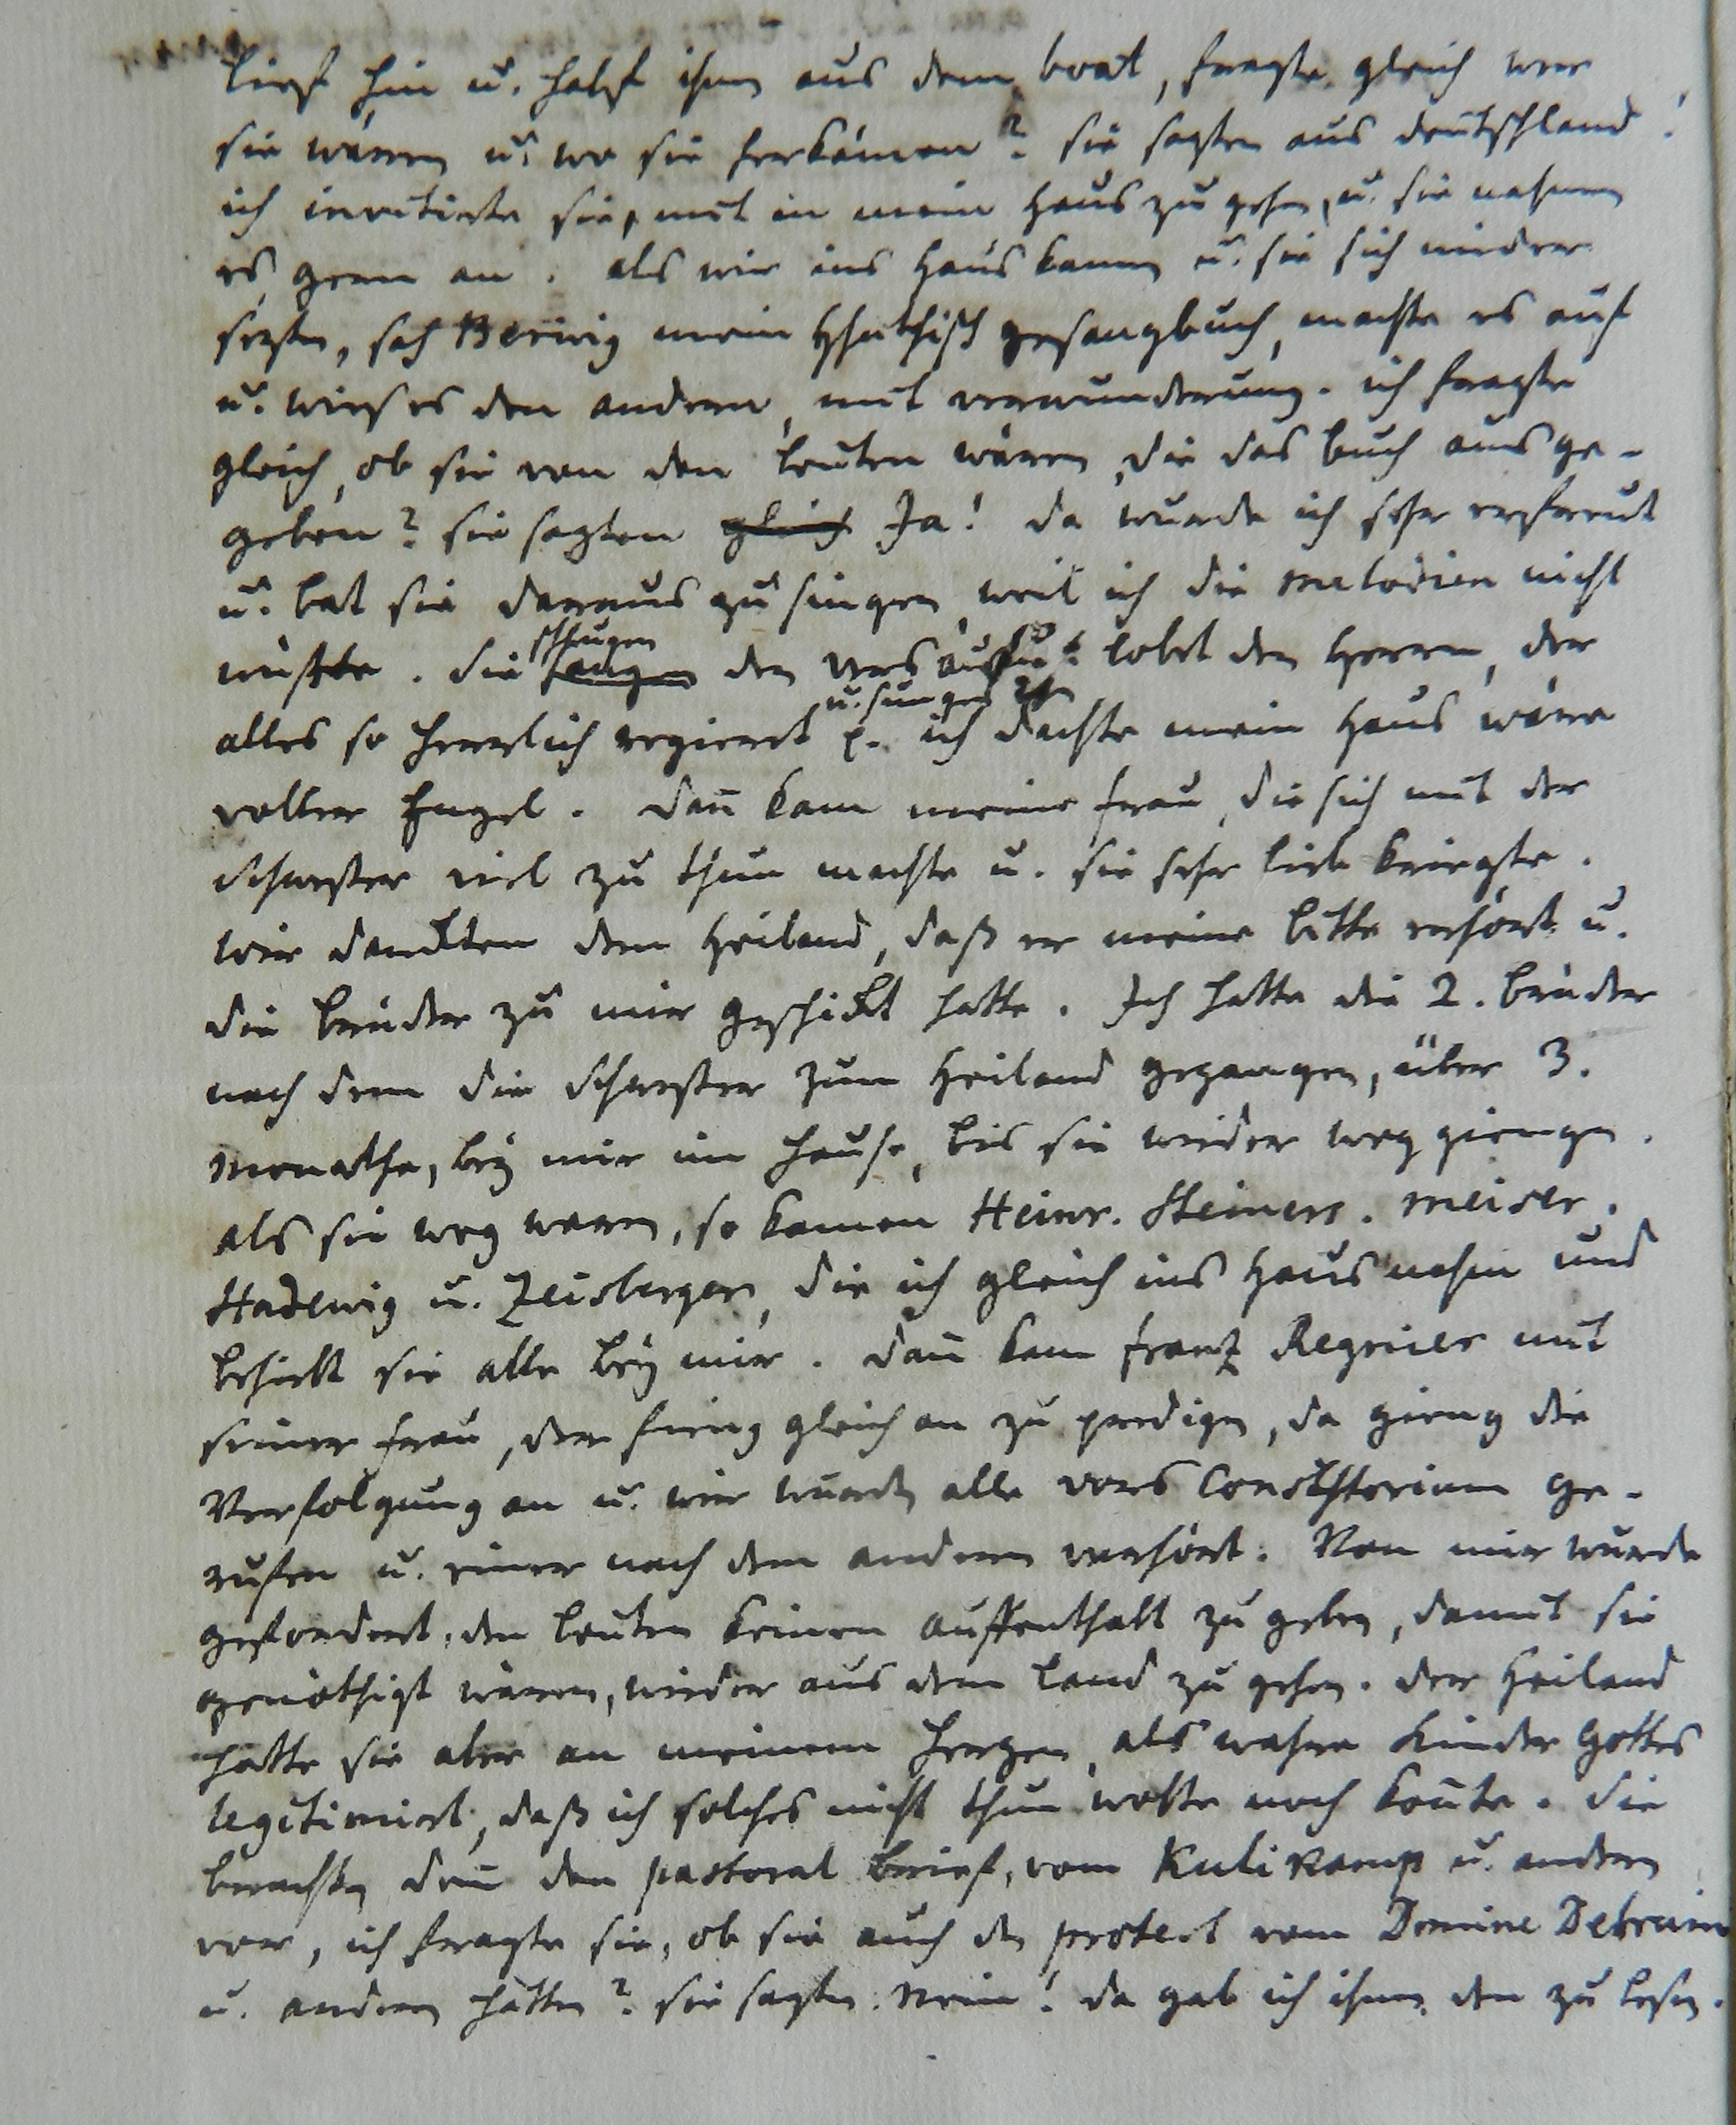 lief hin u. half ihm aus dem boat, fragte gleich wer
sie wären u. wo sie herkämen? sie sagten aus deutschland!
ich invitirte sie, mit in mein Haus zu gehen, u. sie nahmen
es gern an. als wir ins Haus kamen u. sie sich nieder
sezten, sah Berwig mein Hhuthisch gesangbuch, machte es auf
u. wies es den andern, mit verwunderung. ich fragte
gleich, ob sie von den leuten wären, die das buch ausge-
geben? sie sagten gleich Ja! da wurde ich sehr erfreut
u. bat sie daraus zu singen, weil ich die melodien nicht
wuste. Sie sangen schlugen den vers auf: lobet den Herrn, der
alles so herrlich regieret p. u. sungen ich dachte mein Haus wäre
voller Engel. dañ kam meine frau, die sich mit der
Schwester viel zu thun machte u. sie sehr lieb kriegte.
Wir danckten dem Heiland, daß er meine bitte erhört u.
die brüder zu mir geschickt hatte. Ich hatte die 2. brüder
nach dem die Schwester zum Heiland gegangen, über 3.
Monathe, bey mir im Hause, bis sie wieder weg giengen.
als sie weg waren, so kamen Heinr. Steiners. Meiser.
Hadewig u. Zeisberger, die ich gleich ins Haus nahm und
behielt sie alle bey mir. dañ kam franz Regnier mit
seiner frau, der fieng gleich an zu predigen, da gieng die
Verfolgung an u. wir wurden alle vors Consistorium ge-
rufen u. einer nach dem anderen verhört. Von mir wurde
gefordert, den leuten keinen auffenthalt zu geben, damit sie
genöthigt wären, wieder aus dem land zu gehen. der Heiland
hatte sie aber an meinem Herzen, als wahre Kinder Gottes
legitimirt, daß ich solches nicht thun wolte noch koñte. Sie
brachten deñ den pastoral brief, vom Kulikamp u. andern
vor, ich fragte sie, ob sie auch den protest vom Domine Debruin
u. andern hätten? sie sagten. Nein! da gab ich ihnen den zu lesen.